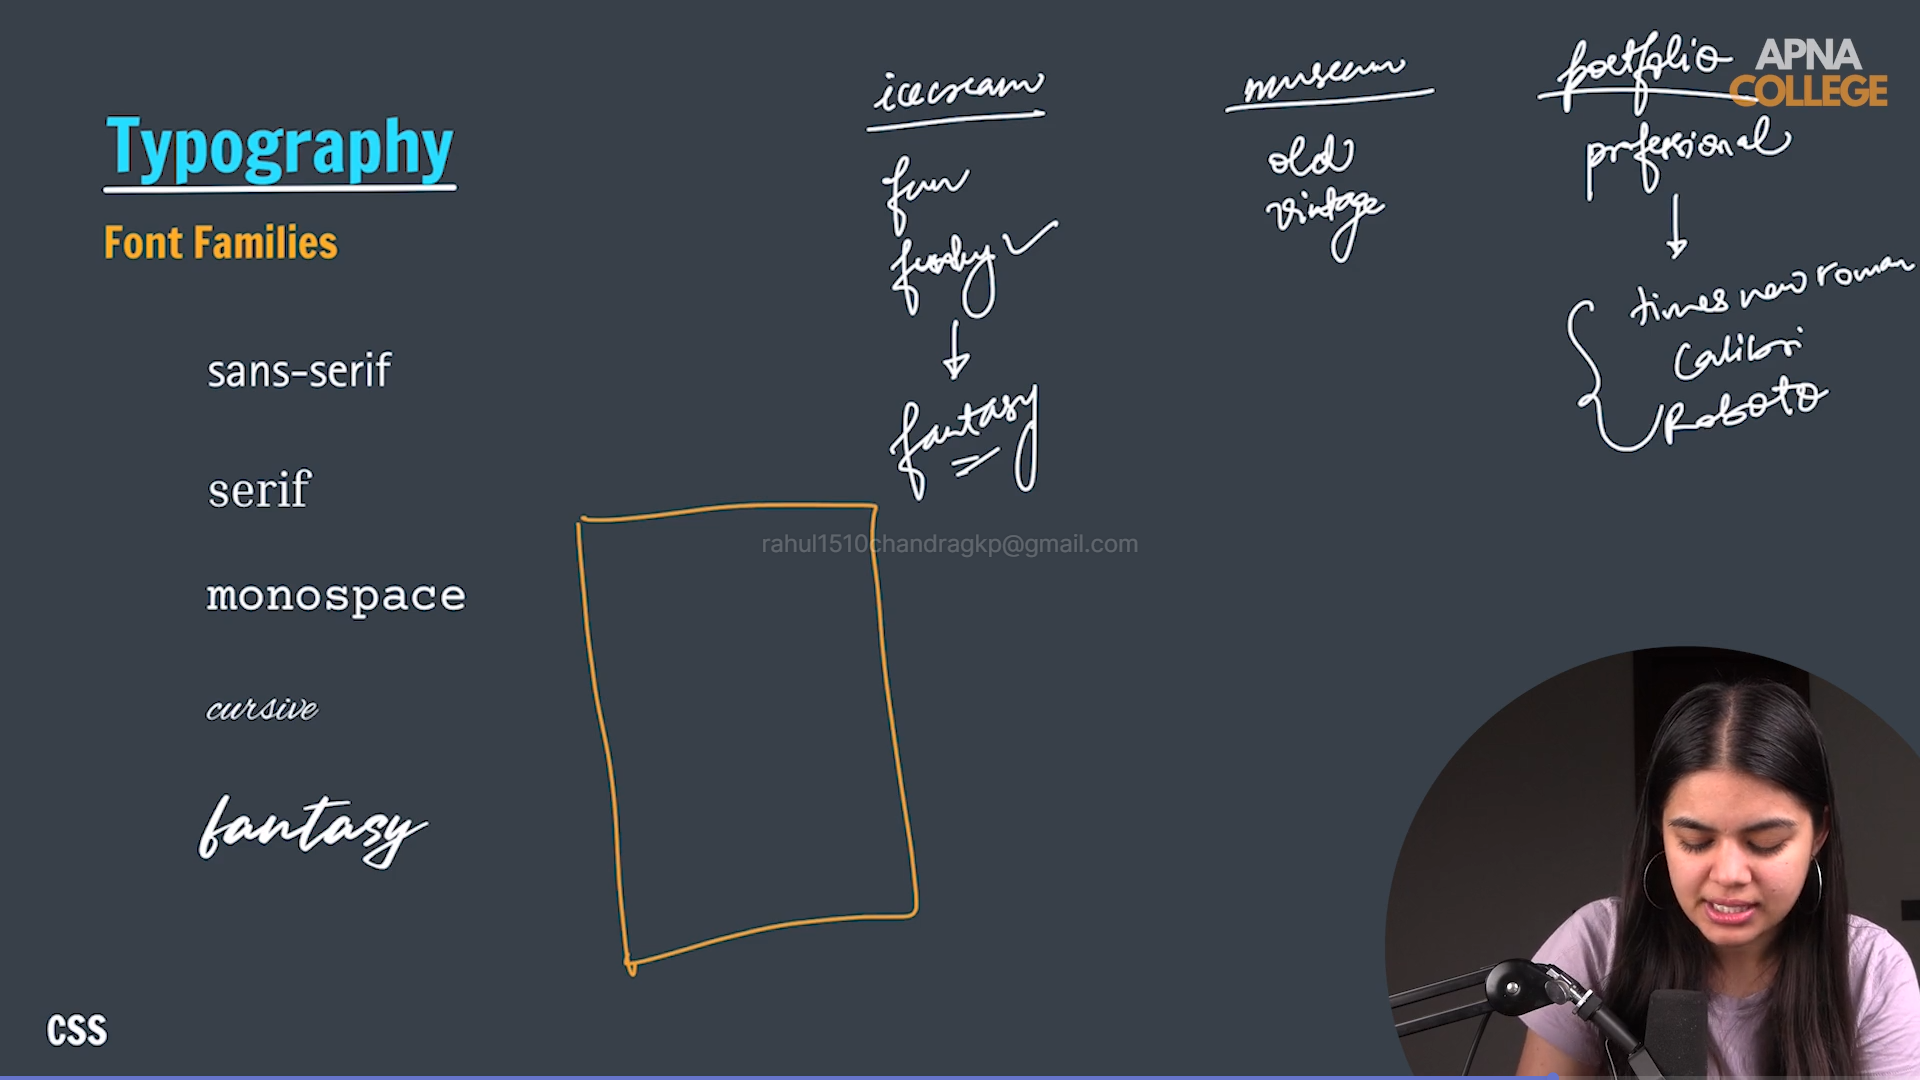 Typography
Font Families
sans-serif
serif
monospace
cursive
fantasy
CSS
icecream
fun
funky
fantasy
museum
old
vintage
portfolio
professional
times new roman
Calibri
Roboto
APNA
COLLEGE
rahul1510chandragkp@gmail.com